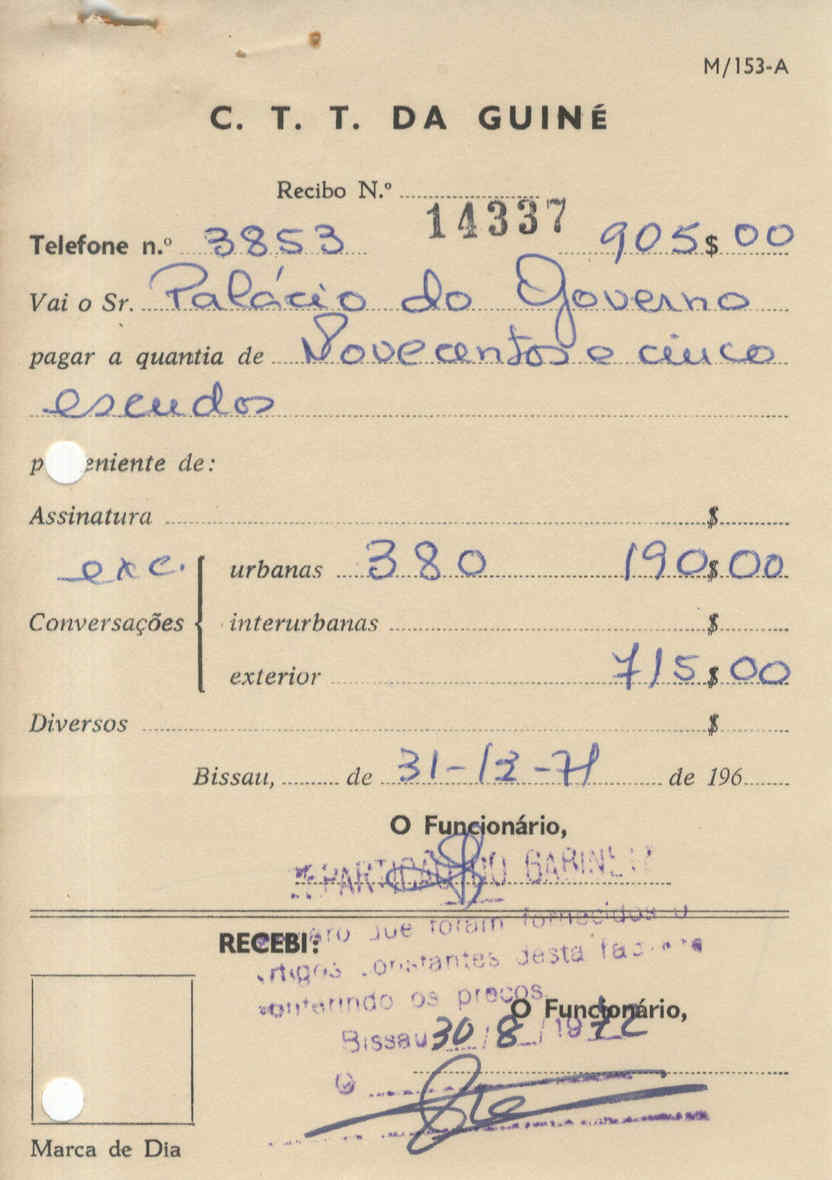 M/153-A
C. T. T. DA GUINÉ
Recibo N.º 14337
Telefone n.º 3853 905$00
Vai o Sr. Palácio do Governo
pagar a quantia de Novecentos e cinco
escudos
p eniente de:
Assinatura $
exc. urbanas 380 190$00
Conversações interurbanas $
exterior 715$00
Diversos $
Bissau, de 31-12-71 de 196
O Funcionário,
PARTIÇÃO DO GABINETE
que foram fornecidos o
RECEBI:
artigos constantes desta
conferindo os preços
O Funcionário,
Bissau 30/8/1972
O
Marca de Dia